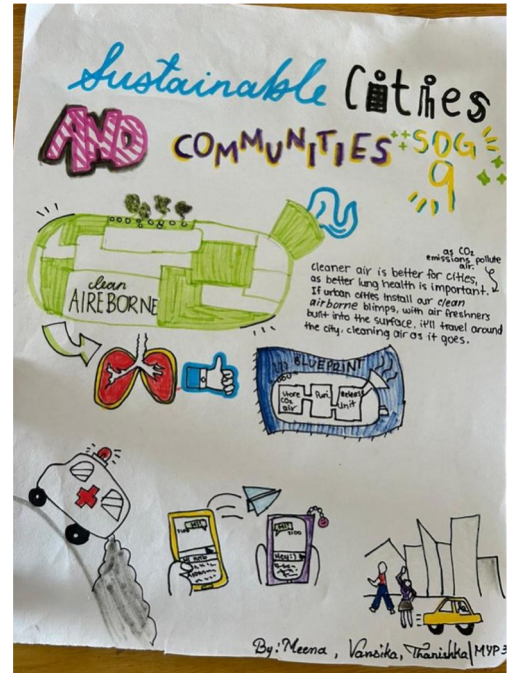 Sustainable Cities
AND COMMUNITIES SDG
9
as CO₂
emissions pollute
air.
cleaner air is better for cities,
as better lung health is important.
If urban cities install our clean
airborne blimps, with air freshners
built into the surface, it'll travel around
the city, cleaning air as it goes.
clean
AIREBORNE
BLUEPRINT
Store
CO₂
air
Puri
Release
Unit
Hi!
Hey!:)
By: Meena, Vansika, Thanishka| MYP 3